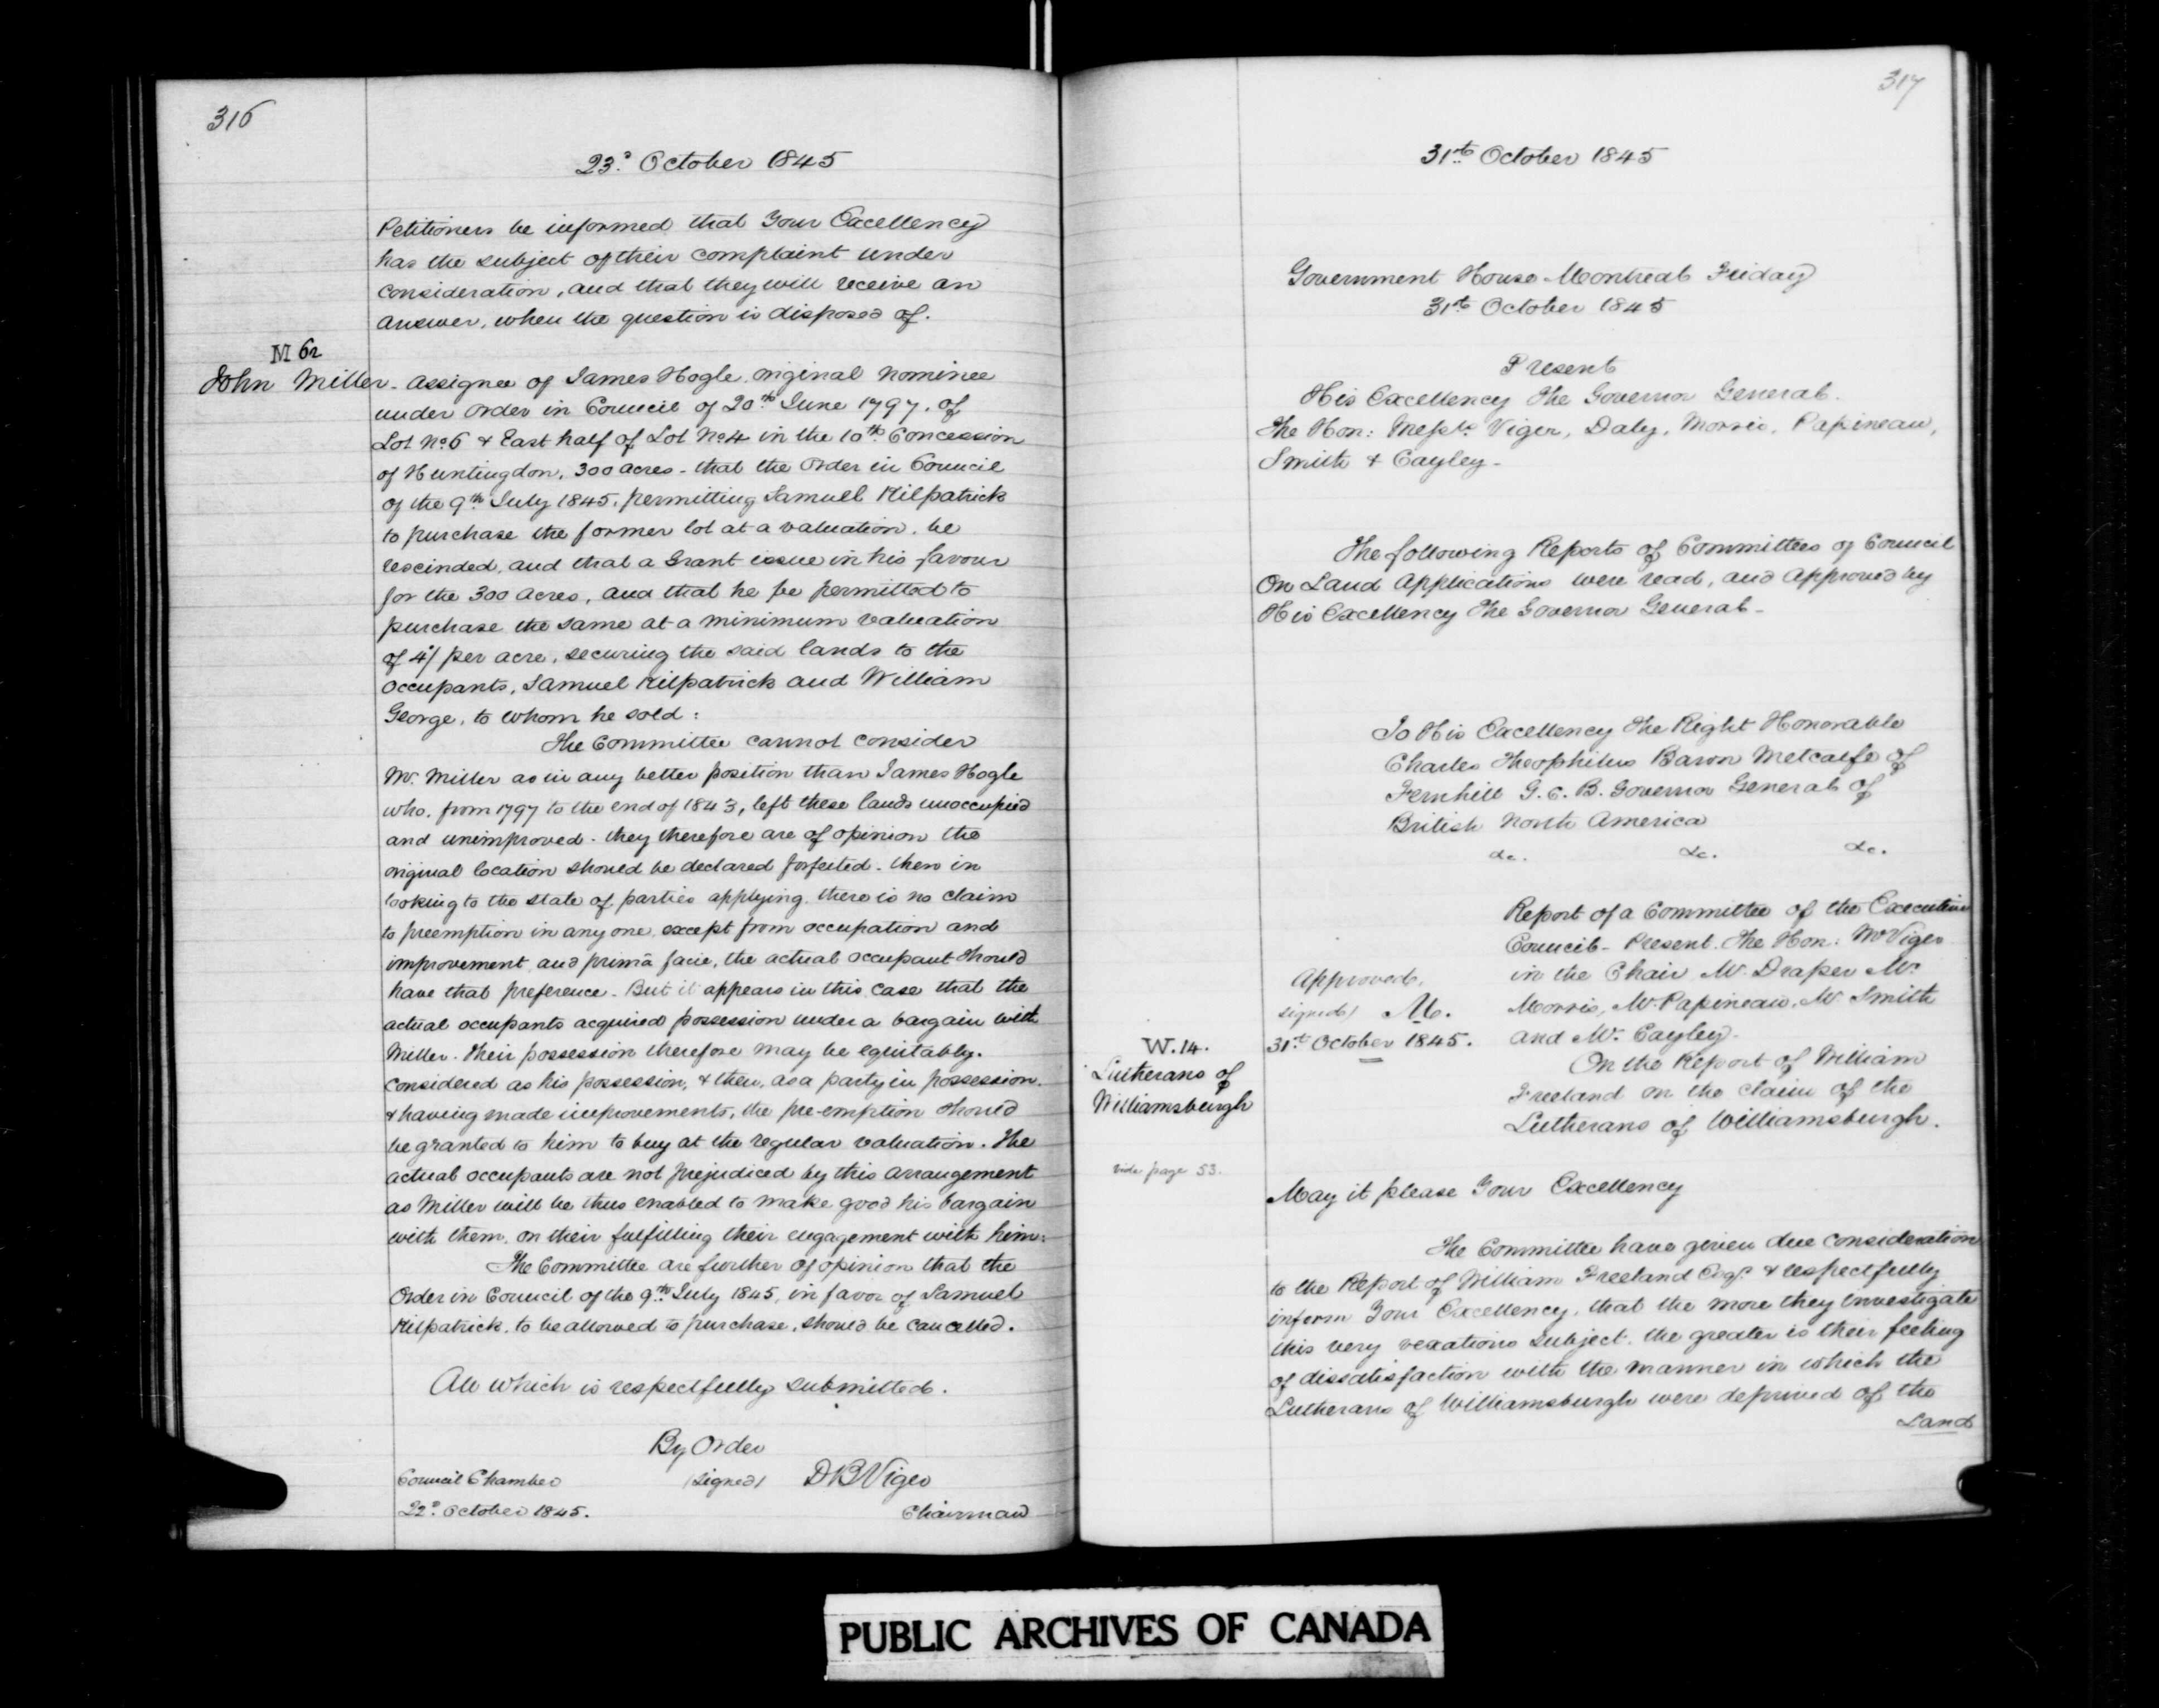 316
23d. October 1845
Petitioners be informed that Your Excellency
has the subject of their complaint under
consideration, and that they will receive an
answer, when the question is disposed of.
M 62
John Miller - assignee of James Hogle, original nominee
under order in Council of 20th June 1797, of
Lot No. 6 & East half of Lot No. 4 in the 10th Concession
of Huntingdon, 300 acres - that the Order in Council
of the 9th July 1845, permitting Samuel Kilpatrick
to purchase the former lot at a valuation, be
rescinded, and that a Grant issue in his favour
for the 300 acres, and that he be permitted to
purchase the same at a minimum valuation
of 4/ per acre, securing the said lands to the
occupants, Samuel Kilpatrick and William
George, to whom he sold:
The Committee cannot consider
Mr. Miller as in any better position than James Hogle
who, from 1797 to the end of 1843, left these lands unoccupied
and unimproved - they therefore are of opinion the
original location should be declared forfeited - then in
looking to the state of parties applying, there is no claim
to preemption in any one, except from occupation and
improvement and primâ facie, the actual occupant should
have that preference - But it appears in this case that the
actual occupants acquired possession under a bargain with
Miller - their possession therefore may be equitably
considered as his possession, & then, as a party in possession
& having made improvements, the pre-emption should
be granted to him to buy at the regular valuation. The
actual occupants are not prejudiced by this arrangement
as Miller will be thus enabled to make good his bargain
with them, on their fulfilling their engagement with him:
The Committee are further of opinion that the
Order in Council of the 9th July 1845, in favor of Samuel
Kilpatrick, to be allowed to purchase, should be cancelled.
All which is respectfully submitted.
By Order
Council Chamber (signed) D B Viger
22d. October 1845. Chairman
317
31st October 1845
Government House Montreal Friday
31st October 1845
Present
His Excellency The Governor General.
The Hon: Messrs. Viger, Daly, Morris, Papineau,
Smith & Cayley -
The following Reports of Committees of Council
On Land Applications were read, and Approved by
His Excellency The Governor General -
To His Excellency The Right Honorable
Charles Theophilus Baron Metcalfe of
Fernhill G. C. B. Governor General of
British North America
&c. &c. &c.
Report of a Committee of the Executive
Council - Present. The Hon: Mr Viger
in the Chair, Mr. Draper Mr.
Morris, Mr. Papineau, Mr. Smith
and Mr. Cayley -
Approved,
signed) M.
31st October 1845.
W. 14.
Lutherans of
Williamsburgh
vide page 53.
On the Report of William
Freeland on the claim of the
Lutherans of Williamsburgh.
May it please Your Excellency
The Committee have given due consideration
to the Report of William Freeland Esqr. & respectfully
inform Your Excellency, that the more they investigate
this very vexatious subject, the greater is their feeling
of dissatisfaction with the manner in which the
Lutherans of Williamsburgh were deprived of the
Land
PUBLIC ARCHIVES OF CANADA